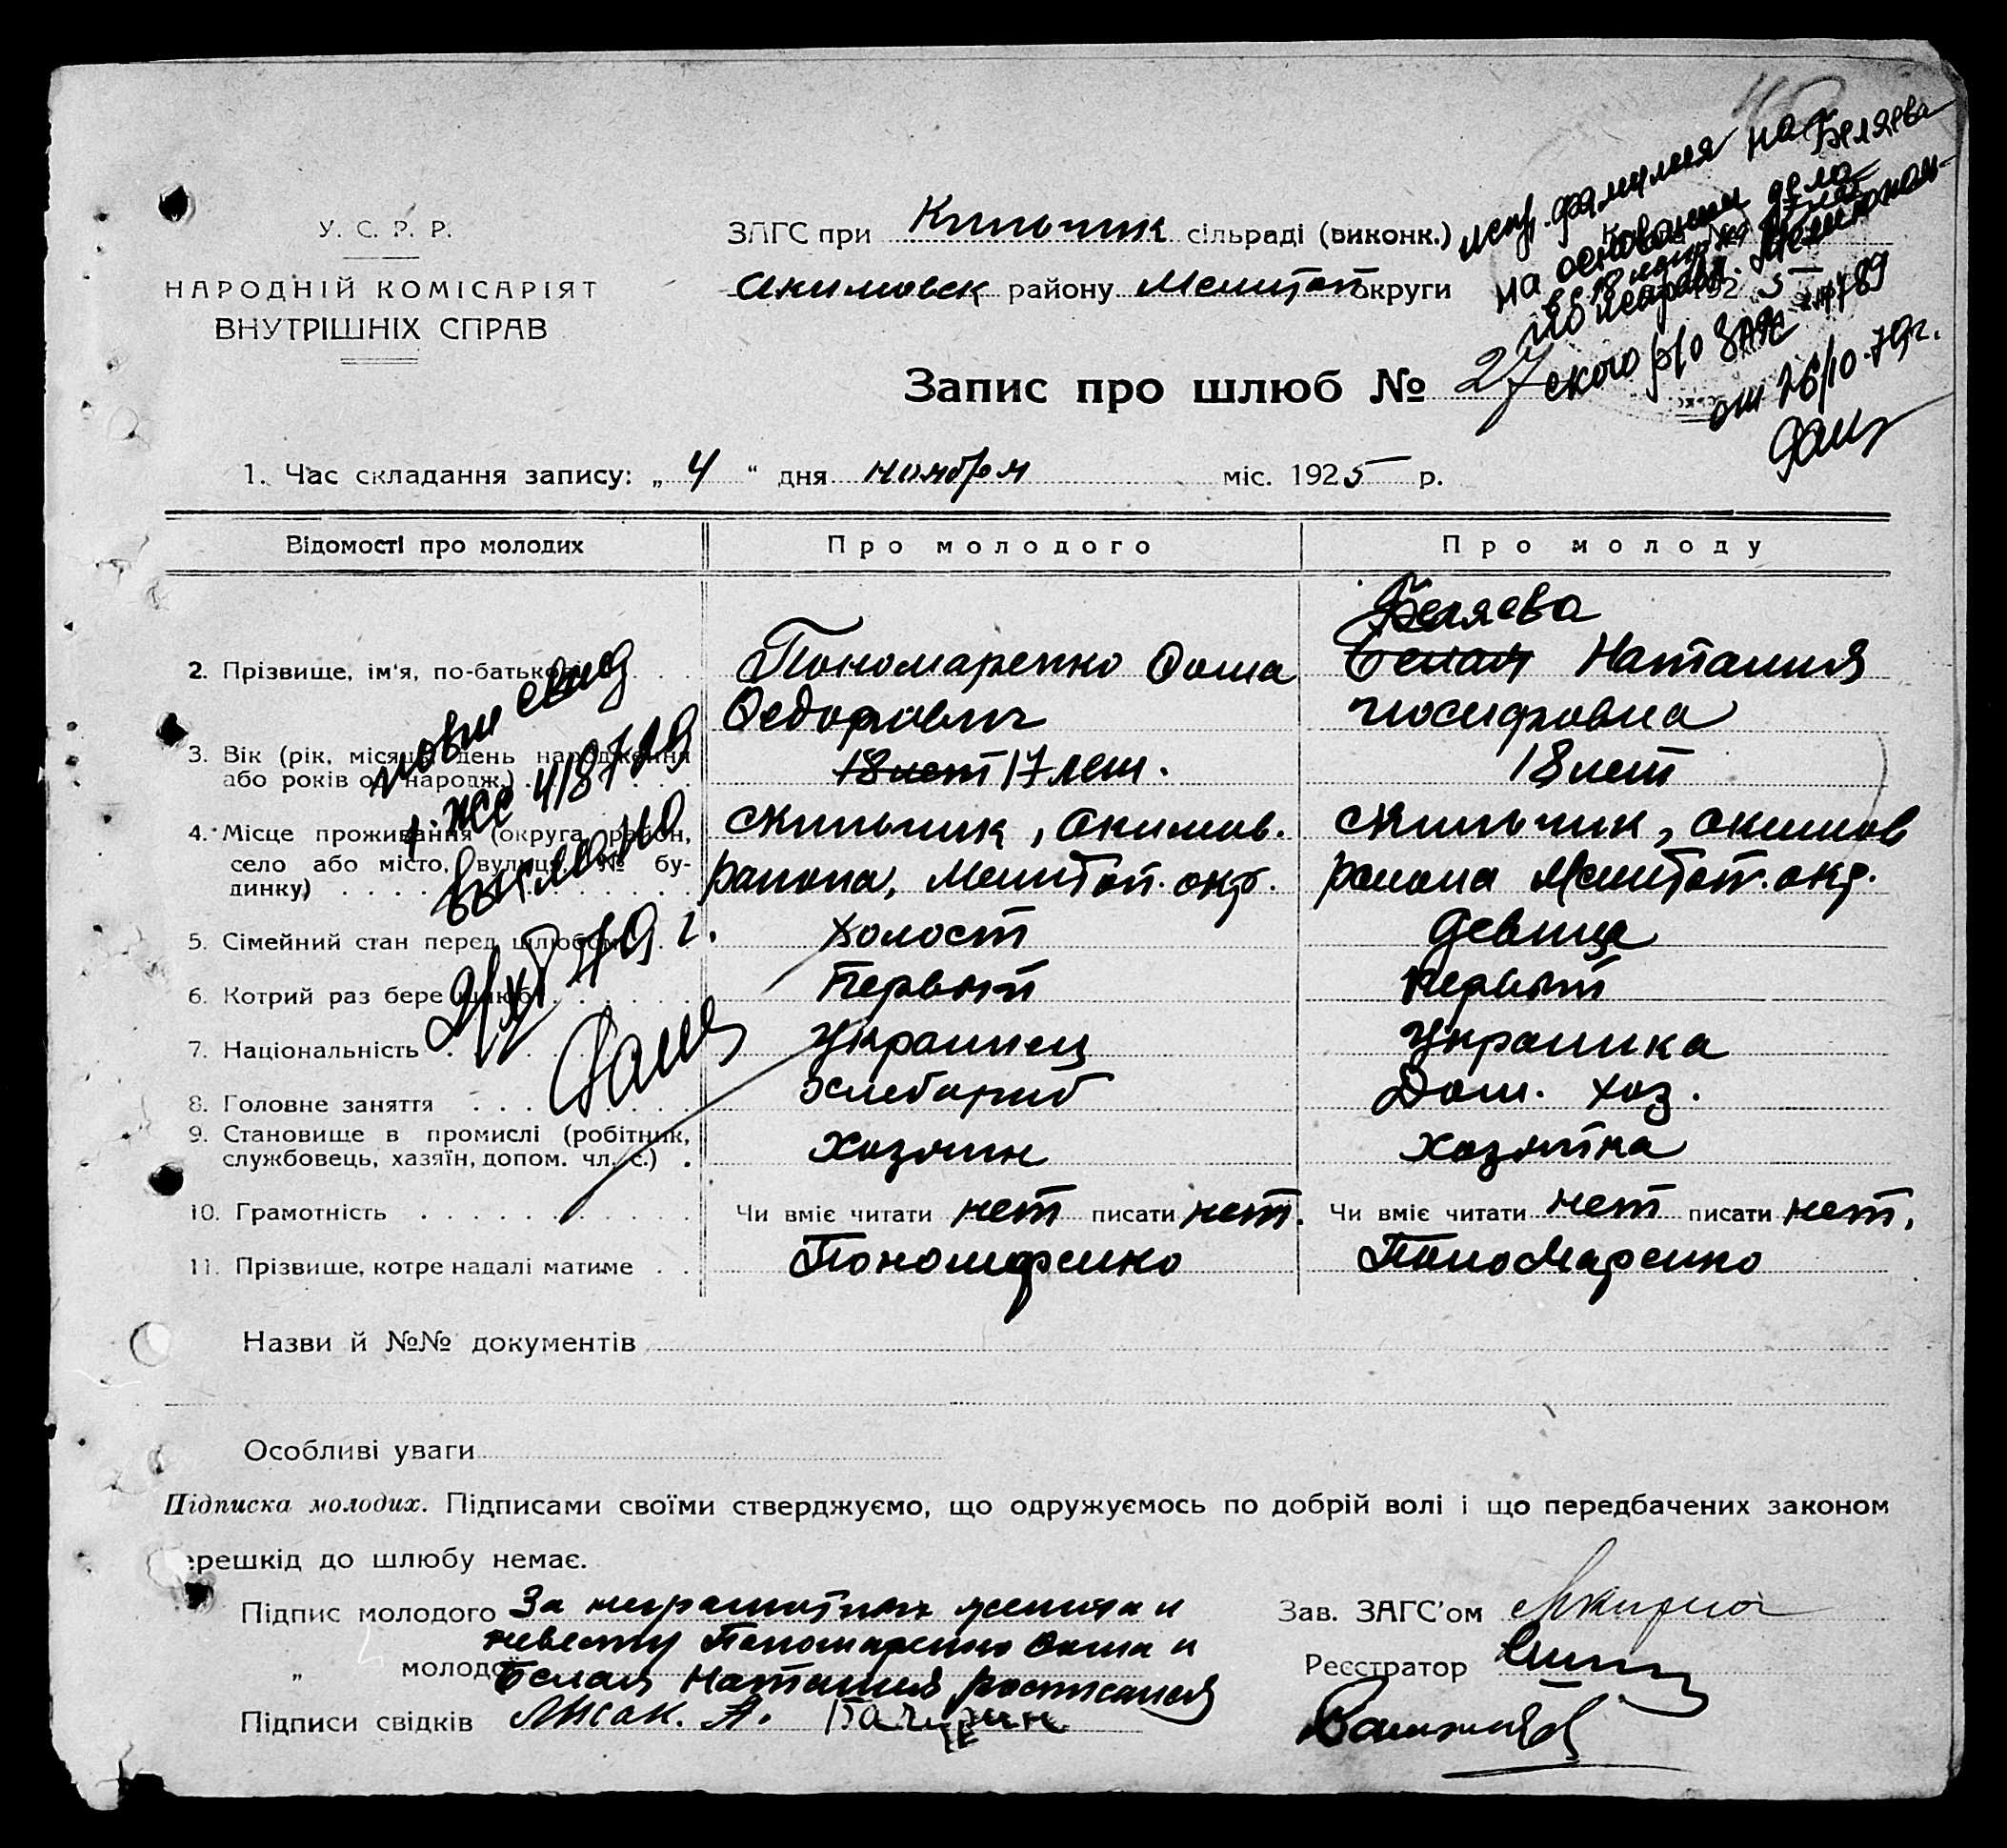 У. С. Р. Р.
НАРОДНІЙ КОМІСАРІЯТ
ВНУТРІШНІХ СПРАВ
ЗАГС при Кильчик сільраді (виконк.)
Акимовск району Мелитоп округи
192 5
испр. фамилия на Беляева
на основании дела
ского р/о ЗАГС
от 26/10-79г.
Запис про шлюб № 27
1. Час складання запису: „ 4 “ дня ноября міс. 1925 р.
Відомості про молодих Про молодого Про молоду
Беляева
2. Прізвище, ім'я, по-батькові Пономаренко Фома Белая Наталия
Федорович Иосифовна
3. Вік (рік, місяць, день народження
або років од народж.) 18 лет 17 лет. 18 лет
4. Місце проживання (округа, район, Кильчик, Акимов. Кильчик, Акимов
село або місто, вулиця, № бу-
динку) района, Мелитоп. окр. района Мелитоп. окр.
5. Сімейний стан перед шлюбом холост девица
6. Котрий раз бере шлюб Первый первый
7. Національність Украинец Украинка
8. Головне заняття хлебороб Дом. хоз.
9. Становище в промислі (робітник,
службовець, хазяїн, допом. чл. с.) хозяин хозяйка
10. Грамотність Чи вміє читати нет писати нет. Чи вміє читати нет писати нет.
11. Прізвище, котре надалі матиме Пономаренко Пономаренко
повт свид
выслано
79 г.
Назви й №№ документів
Особливі уваги
Підписка молодих. Підписами своїми стверджуємо, що одружуємось по добрій волі і що передбачених законом
ерешкід до шлюбу немає.
Підпис молодого За неграмотных жениха и
невесту Пономаренко Фома и
„ молодої Белая Наталия росписался
Підписи свідків Лисак. А.
Зав. ЗАГС'ом
Реєстратор